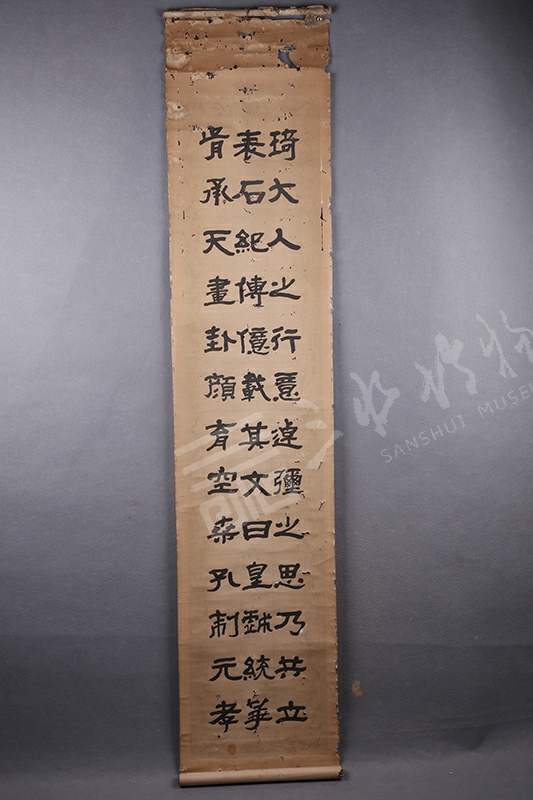 琦大人之行意逴彌之思乃共立
表石紀傳億載其文曰皇戲統華
胥承天畫卦顏育空桑孔制元孝
三水博物
SANSHUI MUSE